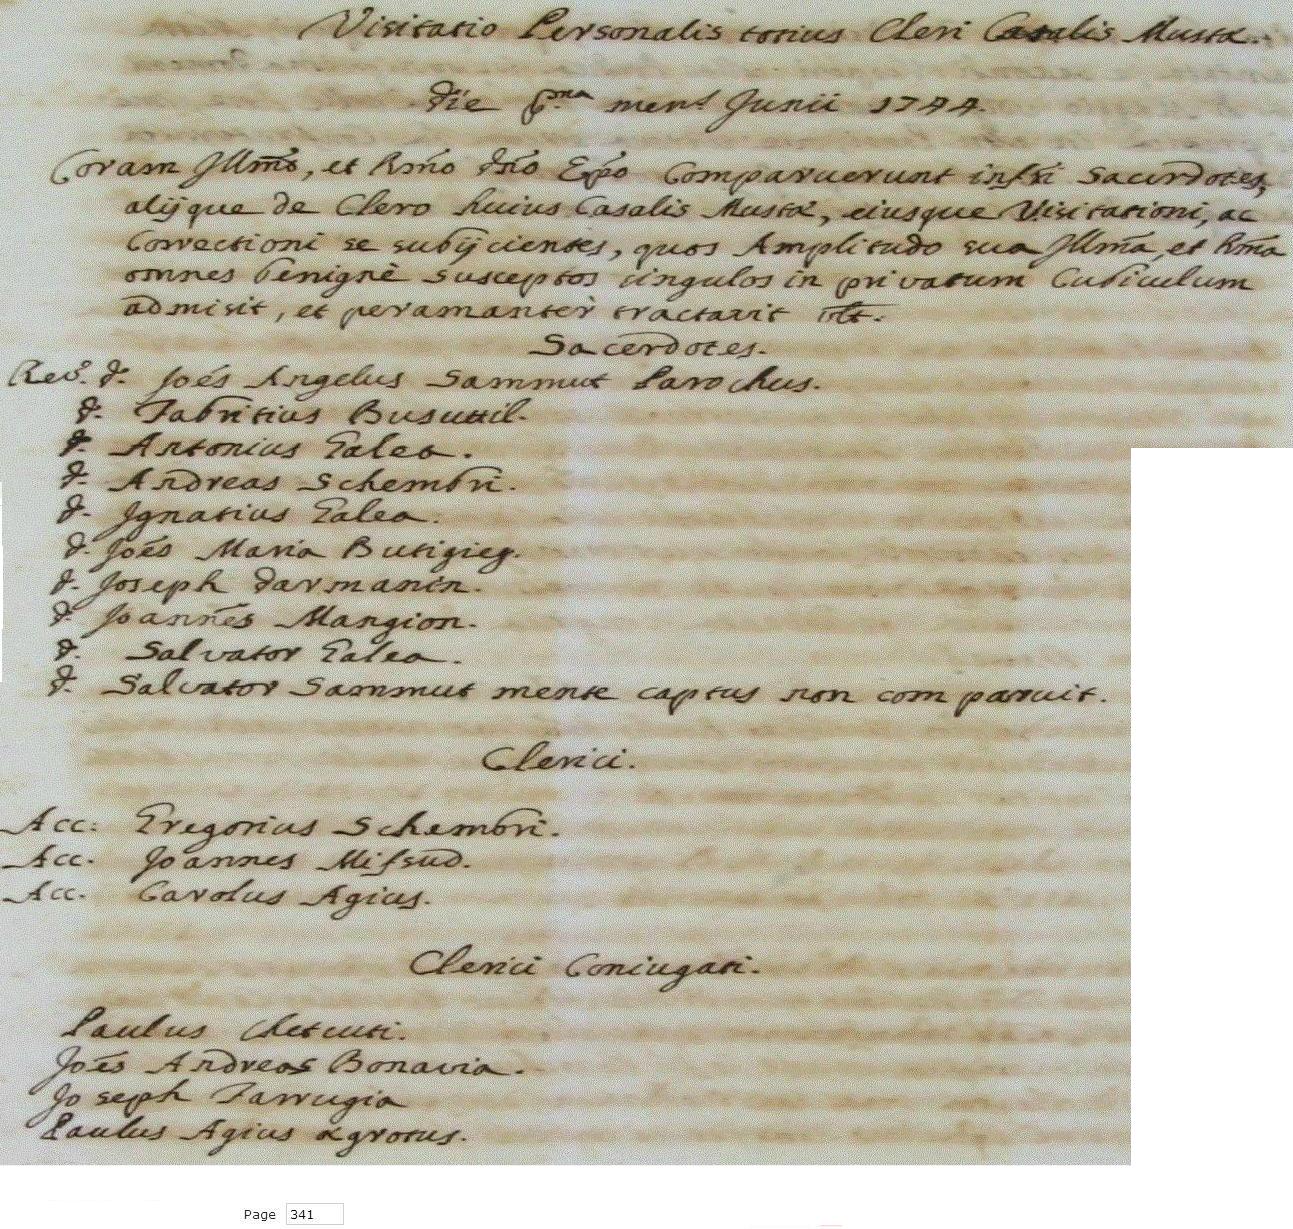 Visitatio Personalis totius Cleri Casalis Mustæ.
Die p.ᵐᵃ mens̄ Junii 1744.
Coram Jllm̄o, et Rm̄o Dn̄o Ep̄o Comparuerunt infrī Sacerdotes,
alijque de Clero huius Casalis Mustæ, eiusque Visitationi, ac
Correctioni se subijcientes, quos Amplitudo sua Jllm̄a, et Rm̄a
omnes benignè susceptos singulos in privatum Cubiculum
admisit, et peramantèr tractavit
Sacerdotes.
Rev.ᵈ D. Joēs Angelus Sammut Parochus.
D. Fabritius Busuttil.
D. Antonius Galea.
D. Andreas Schembri.
D. Jgnatius Galea.
D. Joēs Maria Butigieg.
D. Joseph Darmanin.
D. Joannēs Mangion.
D. Salvator Galea.
D. Salvator Sammut mente captus non comparuit.
Clerici.
Acc: Gregorius Schembri.
Acc. Joannes Mifsud.
Acc. Carolus Agius.
Clerici Coniugati.
Paulus Chetcuti.
Joēs Andreas Bonavia.
Joseph Farrugia
Paulus Agius ægrotus.
Page 341